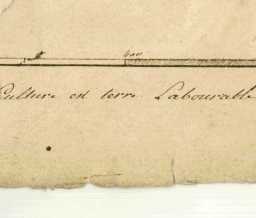 Culture en terre Labourable